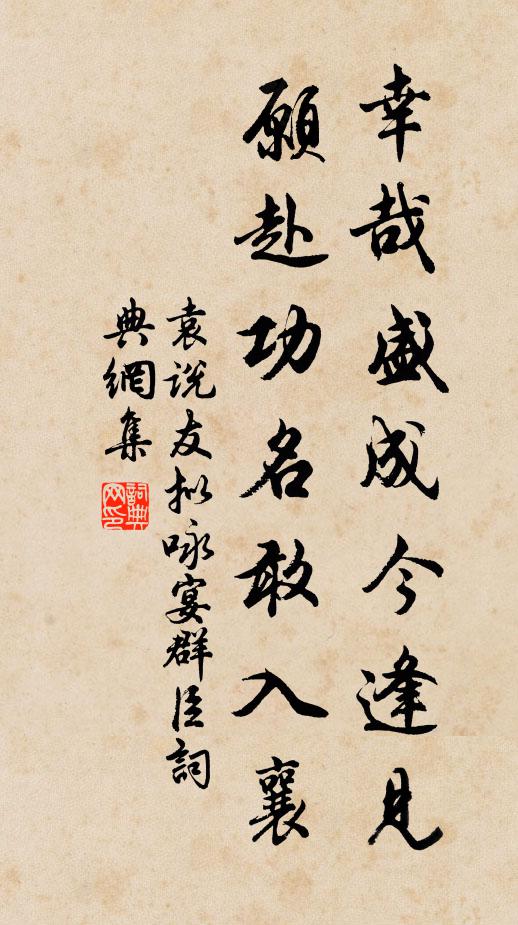 幸哉盛成今逢见
願赴功名敢入襄
袁说友拟咏宴群臣詞
典網集
詞典
网印